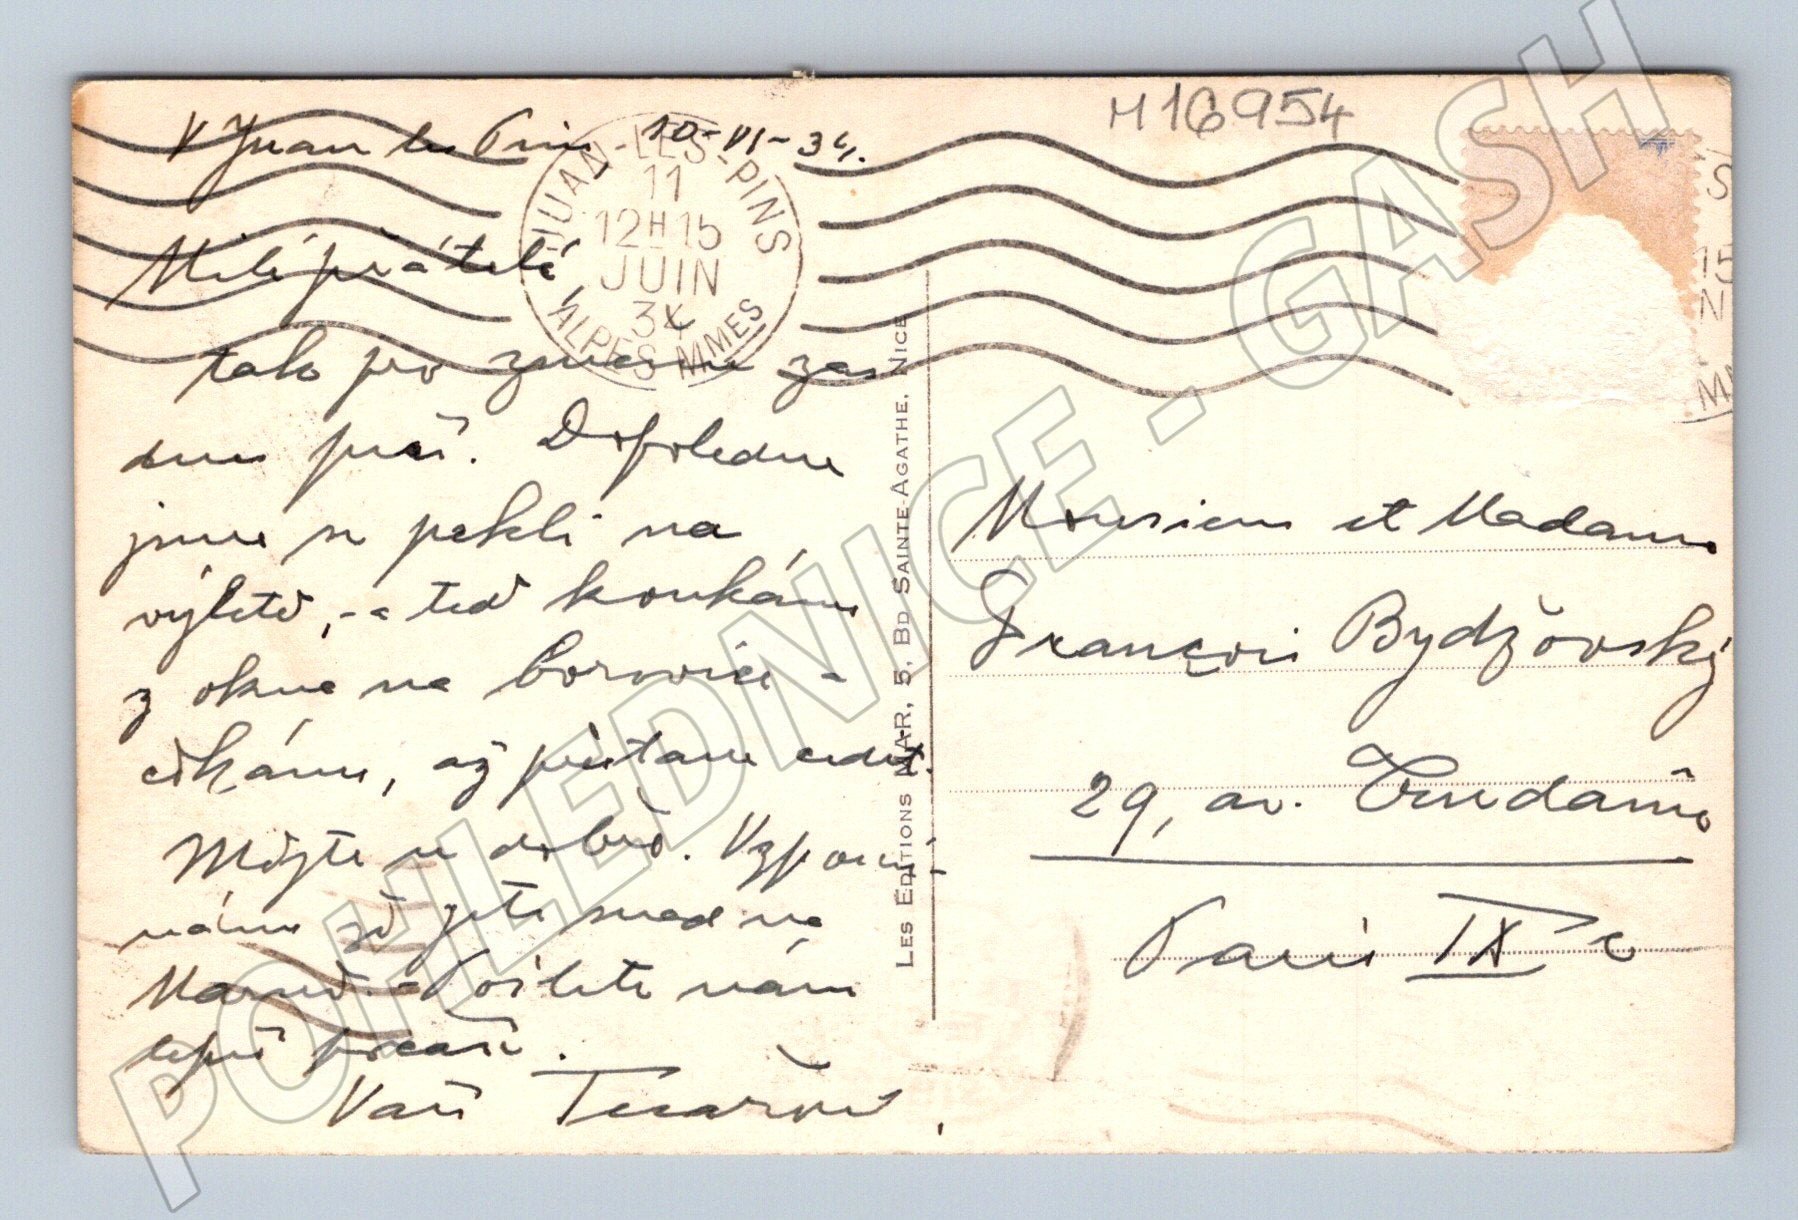 M16954
V Juan les Pins - 10-VI-34.
JUAN-LES-PINS
11
12H15
JUIN
34
ALPES MMES
Milí přátelé
tak pro změnu zas
dnes prší. Dopoledne
jsme se pekli na
výletě, - a teď koukáme
z okna na borovice -
čekáme, až přestane
Mějte se dobře. Vzpomí-
náme že jste snad na
Marně. - Pošlete nám
lepší počasí.
Vaši
LES EDITIONS MAR, 5, BD SAINTE-AGATHE, NICE
Monsieur et Madame
François Bydžovský
29, av. Trudaine
Paris IXe
POHLEDNICE - GASH